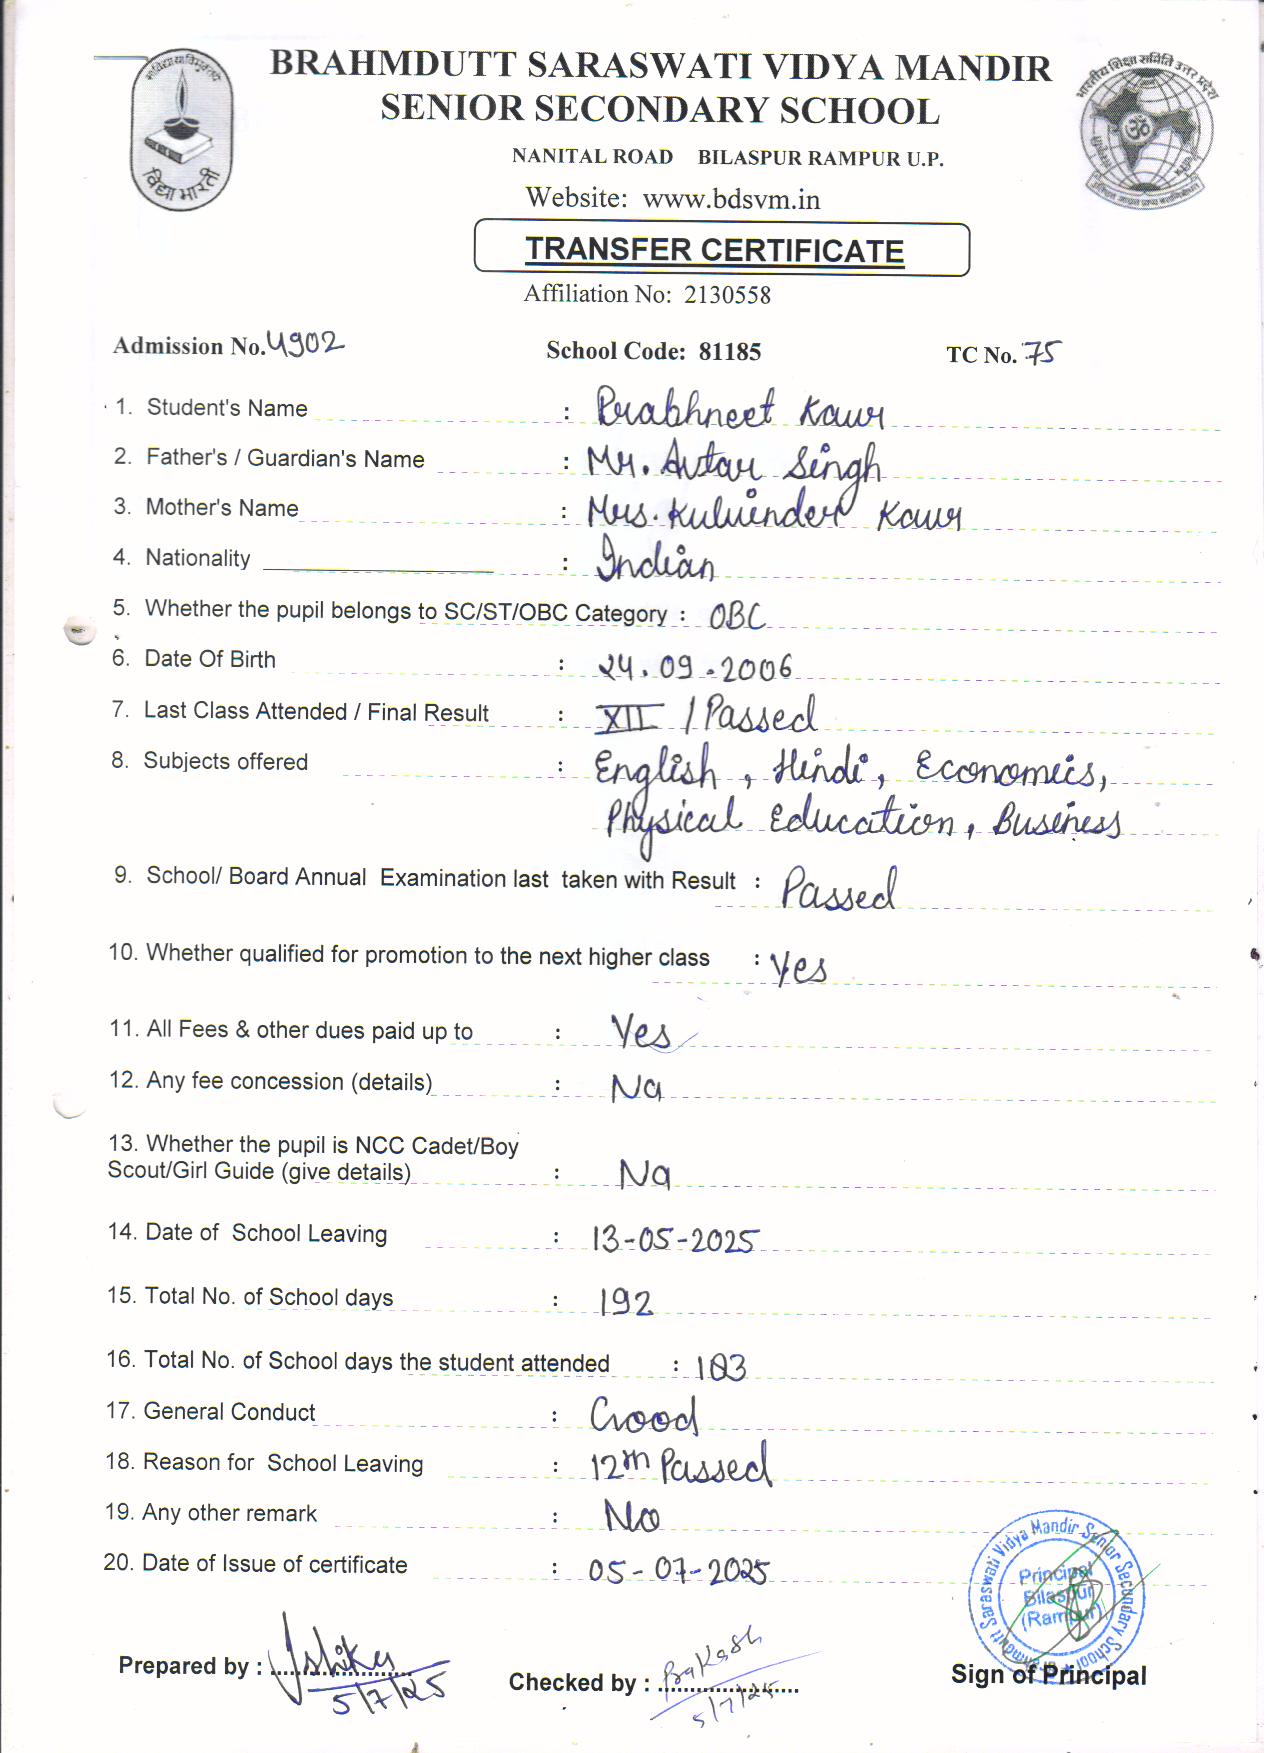 BRAHMDUTT SARASWATI VIDYA MANDIR
SENIOR SECONDARY SCHOOL
NANITAL ROAD BILASPUR RAMPUR U.P.
Website: www.bdsvm.in
विद्या भारती
TRANSFER CERTIFICATE
Affiliation No: 2130558
Admission No. 4902 School Code: 81185 TC No. 75
1. Student's Name : Prabhneet Kaur
2. Father's / Guardian's Name : Mr. Avtar Singh
3. Mother's Name : Mrs. Kulwinder Kaur
4. Nationality : Indian
5. Whether the pupil belongs to SC/ST/OBC Category : OBC
6. Date Of Birth : 24.09.2006
7. Last Class Attended / Final Result : XII / Passed
8. Subjects offered : English, Hindi, Economics,
Physical Education, Business
9. School/ Board Annual Examination last taken with Result : Passed
10. Whether qualified for promotion to the next higher class : Yes
11. All Fees & other dues paid up to : Yes
12. Any fee concession (details) : Na
13. Whether the pupil is NCC Cadet/Boy
Scout/Girl Guide (give details) : Na
14. Date of School Leaving : 13-05-2025
15. Total No. of School days : 192
16. Total No. of School days the student attended : 183
17. General Conduct : Good
18. Reason for School Leaving : 12th Passed
19. Any other remark : No
20. Date of Issue of certificate : 05-07-2025
Saraswati Vidya Mandir Senior Secondary School
Principal
Bilaspur
(Rampur)
Prepared by : 5/7/25
Checked by : 5/7/25
Sign of Principal